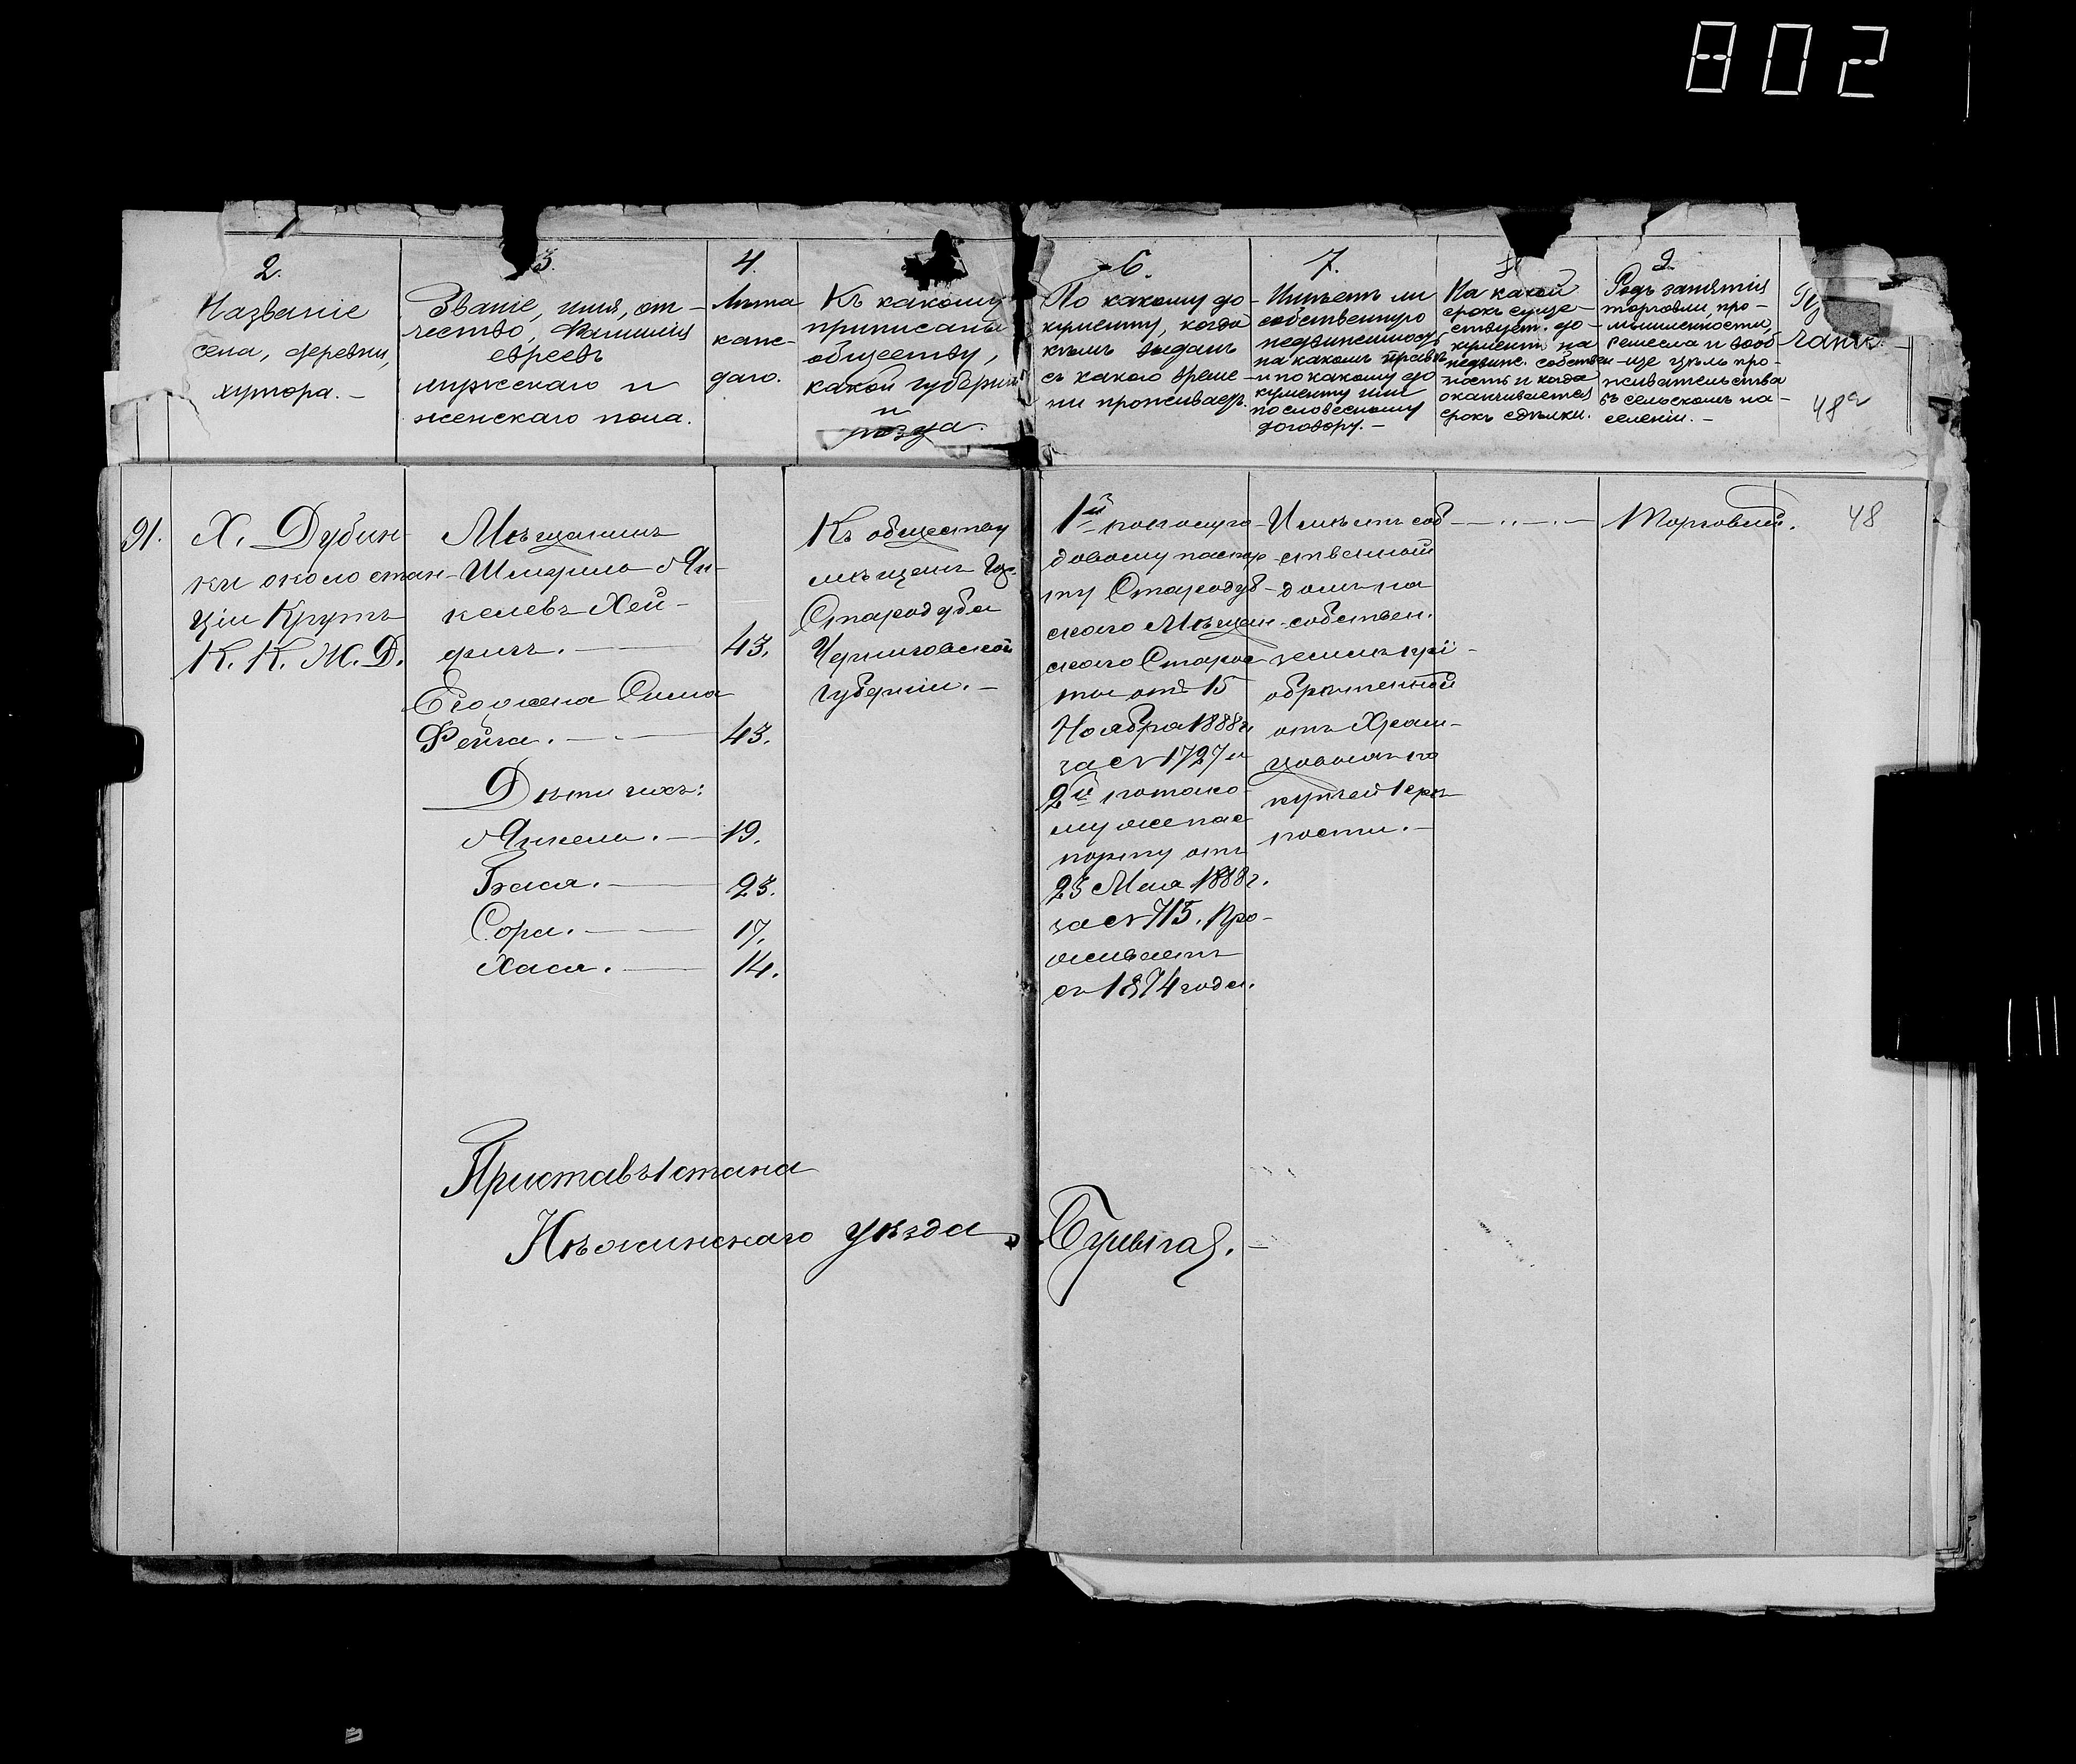 802
2.
Названіе
села, деревни,
хутора. –
3.
Званіе, имя, от-
чество, Фамилия
евреевъ
мужескаго и
женскаго пола.
4.
Лѣта
каж-
даго.
Къ какому
приписаны
обществу,
какой губерніи
и
уѣзда.
6.
По какому до-
кументу, когда
кѣмъ выданъ
съ какого време-
ни проживаетъ.
7.
Имѣетъ ли
собственную
недвижимость
на какомъ правѣ
и по какому до
кументу или
по словесному
договору. –
На какой
срокъ суще-
ствует. до-
кументъ на
недвиж. собствен-
ность и когда
оканчивается
срокъ сдѣлки.
9.
Родъ занятія
торговли, про-
мышленности,
ремесла и вооб-
ще цѣль про-
живательства
въ сельскомъ на-
селеніи. –
48а
91.
Х. Дубин-
ки около стан-
ціи Круты
К. К. Ж. Д.
Мѣщанинъ
Шмерло Ян-
келевъ Хей-
фицъ. — 43.
Его жена Сима
Фейга. — 43.
Дѣти ихъ:
Янкель. — 19.
Бася. — 23.
Сора. — 17.
Хася. — 14.
Къ обществу
мѣщанъ Гор.
Стародуба
Черниговской
губерніи. –
1й по полуго-
довому паспор-
ту Стародуб-
скаго Мѣщан-
скаго Старос
ты отъ 15
Ноября 1888 г
за № 1727 и
2й по тако-
му же пас
порту отъ
23 Мая 1888 г.
за № 715. Про-
живаетъ
съ 1874 года.
Имѣетъ соб
ственный
домъ на
собствен.
землѣ прі-
обрѣтенной
отъ
по
купчей крѣ-
пости. –
— „ — „ —
Торговлей.
48
Приставъ 1 стана
Нѣжинскаго уѣзда